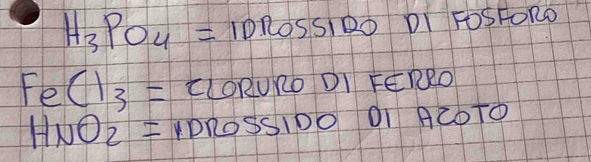 H₃PO₄ = IDROSSIDO DI FOSFORO
FeCl₃ = CLORURO DI FERRO
HNO₂ = IDROSSIDO DI AZOTO